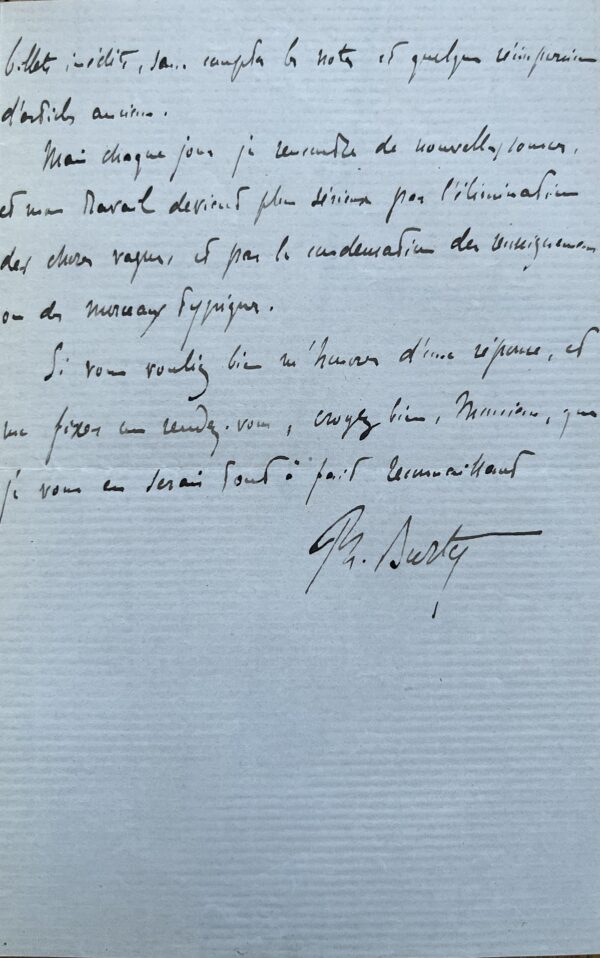 billets inédits, sans compter les notes et quelques réimpressions
d'articles anciens.
Mais chaque jour je rencontre de nouvelles sources,
et mon travail devient plus sérieux par l'élimination
des choses vagues, et par la condensation des renseignemens
ou des morceaux typiques.
Si vous vouliez bien m'honorer d'une réponse, et
me fixer un rendez-vous, croyez bien, Monsieur, que
je vous en serais tout à fait reconnaissant
Ph. Burty